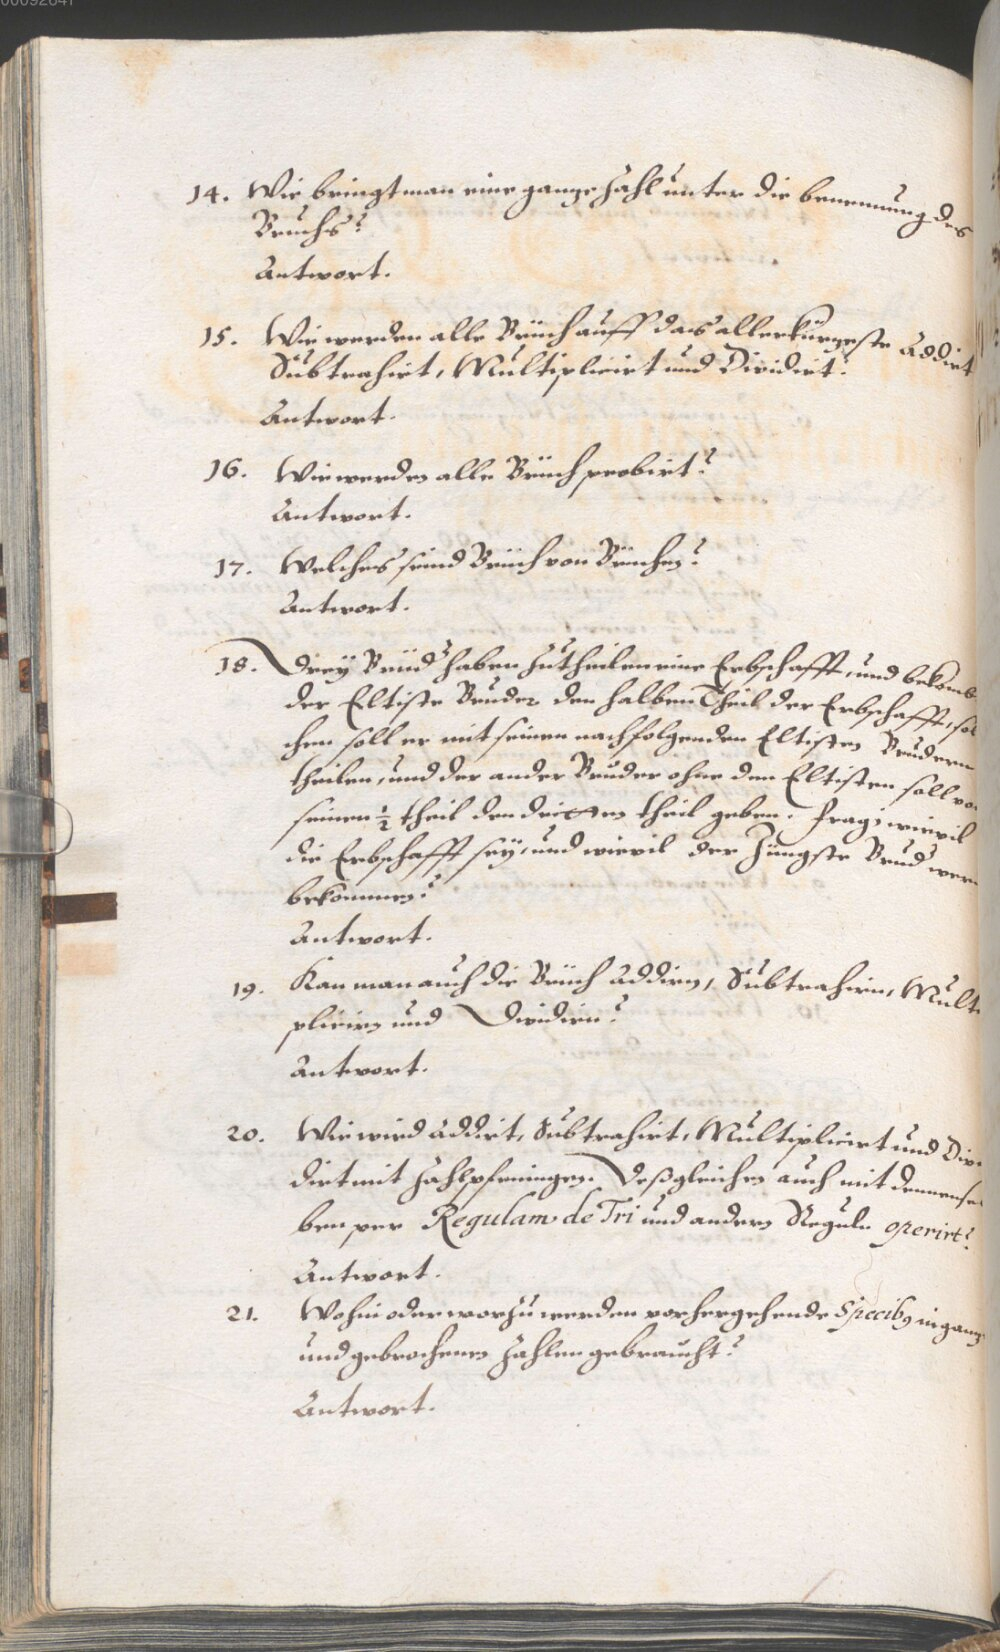 14. Wie bringt man eine gantze Zahl unter die benennung des
Bruchs?
Antwort.
15. Wie werden alle Brüch auff das allerkürtzeste Addirt
Subtrahirt, Multiplicirt und Dividirt?
Antwort.
16. Wie werden alle Brüch probirt?
Antwort.
17. Welches seind Brüch von Brüchen?
Antwort.
18. Dreÿ Brüd haben zutheilen eine Erbschafft, und bekomb
der Eltiste Bruder den halben Theil der Erbschafft, sol
chen soll er mit seinen nachfolgenden Eltisten Brudern
theilen, und der ander Bruder ohne den Eltisten soll vo
seinen ½ theil den dritten theil geben. frag: wievil
die Erbschafft seÿ, und wievil der Jüngste Brud wer
bekommen?
Antwort.
19. Kan man auch die Brüch Addirn, Subtrahirn, Multi
plicirn und Dividirn?
Antwort.
20. Wie wird Addirt, Subtrahirt, Multiplicirt und Divi
dirt mit Zahlpfeningen. Deßgleichen auch mit demense
ben per Regulam de Tri und andern Reguln operirt?
Antwort.
21. Wohin oder worzu werden vorhergehende Specibg in gantz
und gebrochenen Zahlen gebraucht?
Antwort.